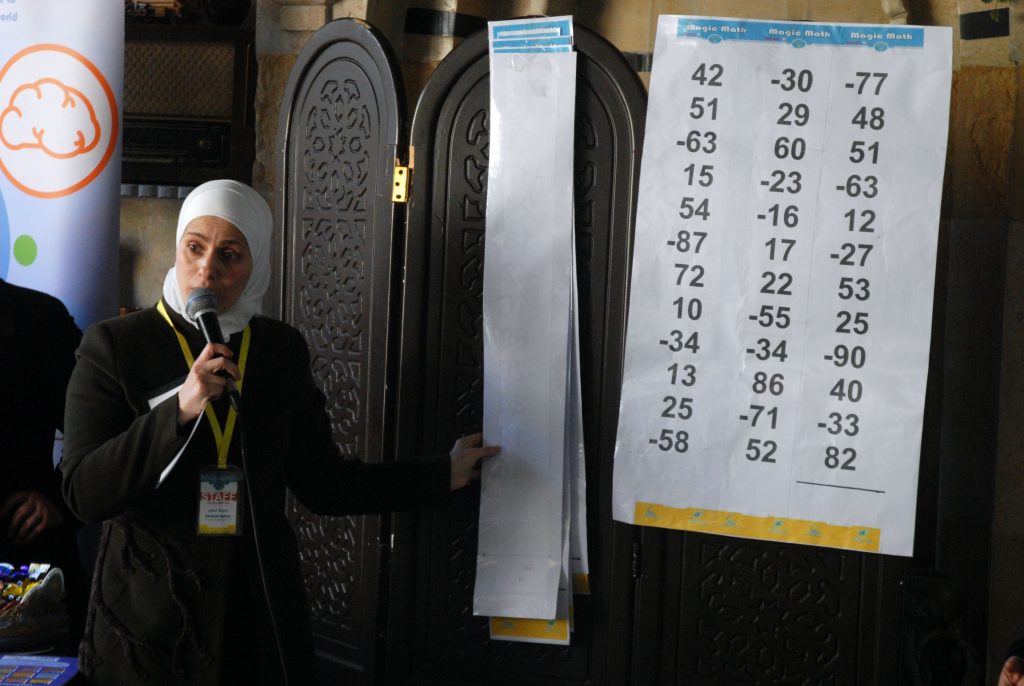 World
STAFF
Magic Math Magic Math Magic Math
42 -30 -77
51 29 48
-63 60 51
15 -23 -63
54 -16 12
-87 17 -27
72 22 53
10 -55 25
-34 -34 -90
13 86 40
25 -71 -33
-58 52 82